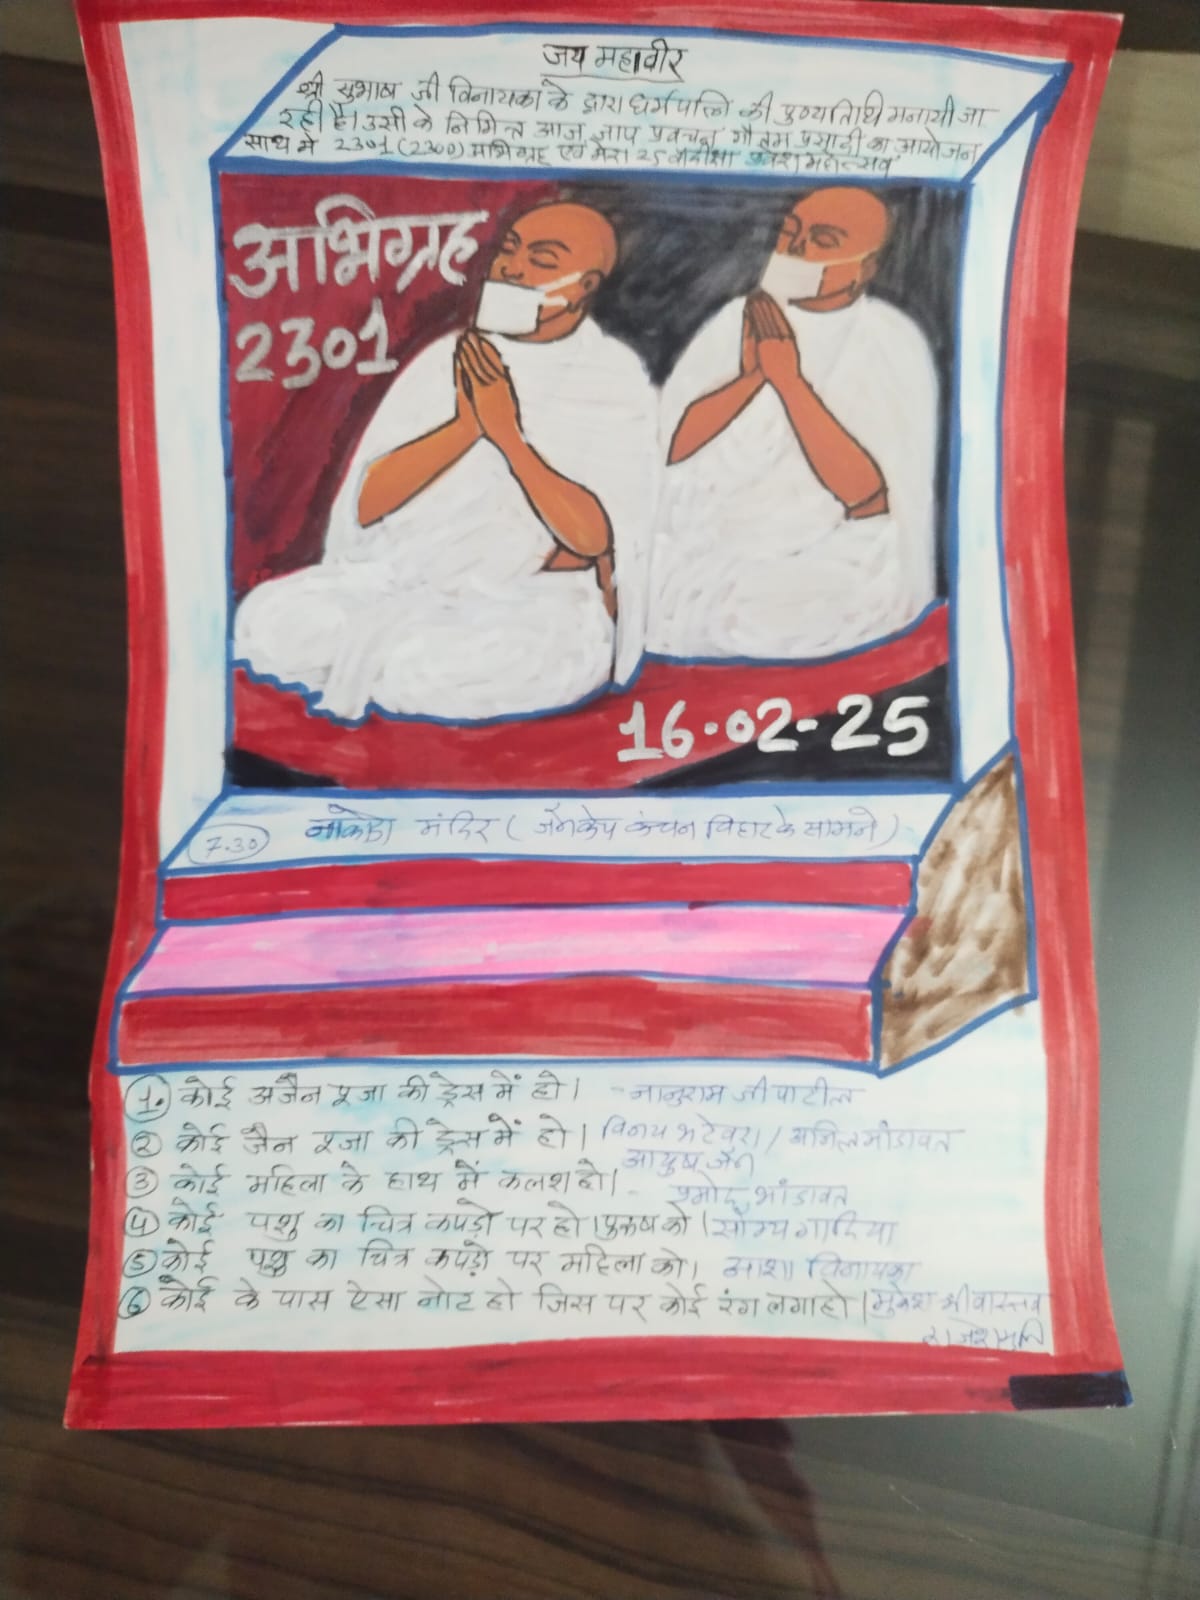 जय महावीर
श्री सुभाष जी विनायका के द्वारा धर्मपत्नि की पुण्यतिथि मनायी जा
रही है। उसी के निमित्त आज जाप प्रवचन गौतम प्रसादी का आयोजन
साथ में 2301 (2300) अभिग्रह एवं मेरा 25 महोत्सव
अभिग्रह
2301
16-02-25
7.30
नाकोड़ा मंदिर ( कंचन विहार के सामने )
1. कोई अजैन पूजा की ड्रेस में हो। - नानुराम जी पाटील
2 कोई जैन पूजा की ड्रेस में हो। विनय भटेवरा / अनिल भांडावत
आयुष जैन
3 कोई महिला के हाथ में कलश हो। - प्रमोद भांडावत
4 कोई पशु का चित्र कपड़ो पर हो। पुरुष को। सौम्य गादिया
5 कोई पशु का चित्र कपड़ो पर महिला को। आशा विनायका
6 कोई के पास ऐसा नोट हो जिस पर कोई रंग लगा हो। मुकेश श्रीवास्तव
राजेश मुनि